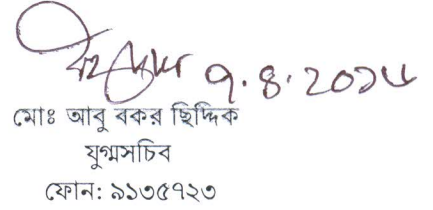 ৭.৪.২০১৬
মোঃ আবু বকর ছিদ্দিক
যুগ্মসচিব
ফোন: ৯১৩৫৭২৩